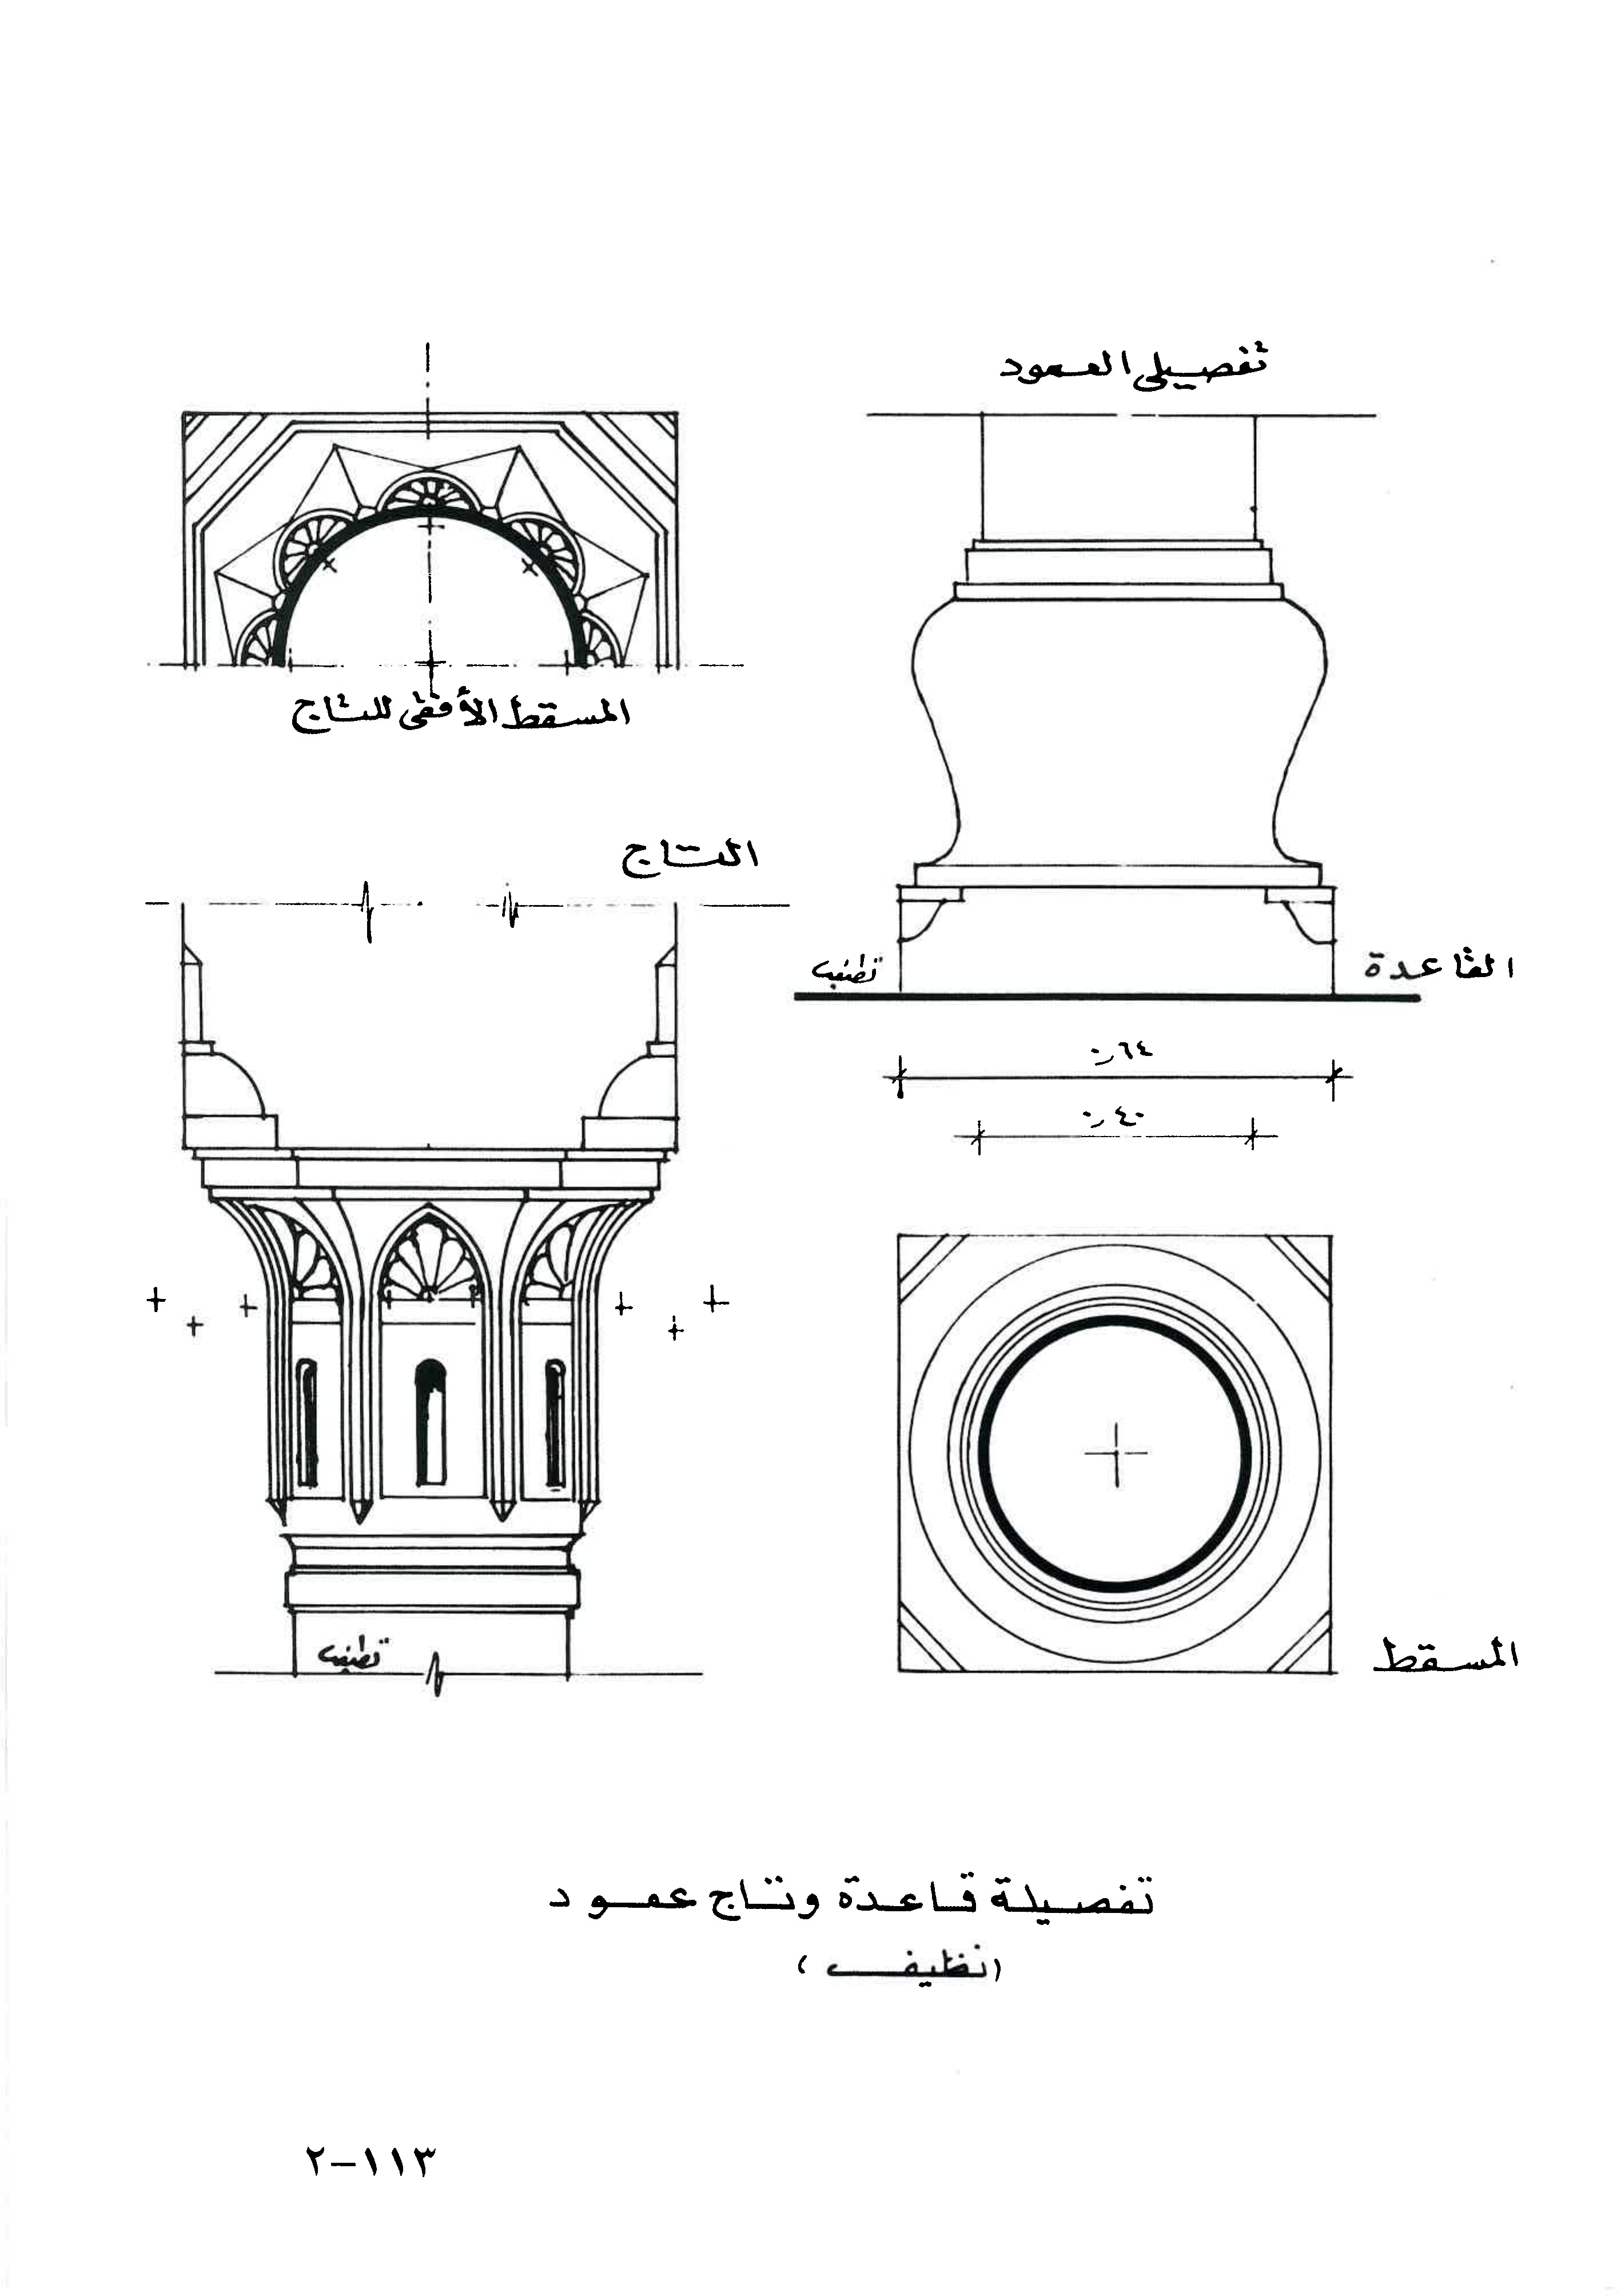 تفصيلى العمود
المسقط الأفقى للتاج
التاج
القاعدة
نظيف
٠٫٦٤
٠٫٤٠
المسقط
نظيف
تفصيلة قاعدة وتاج عمود
(نظيف)
٢-١١٣